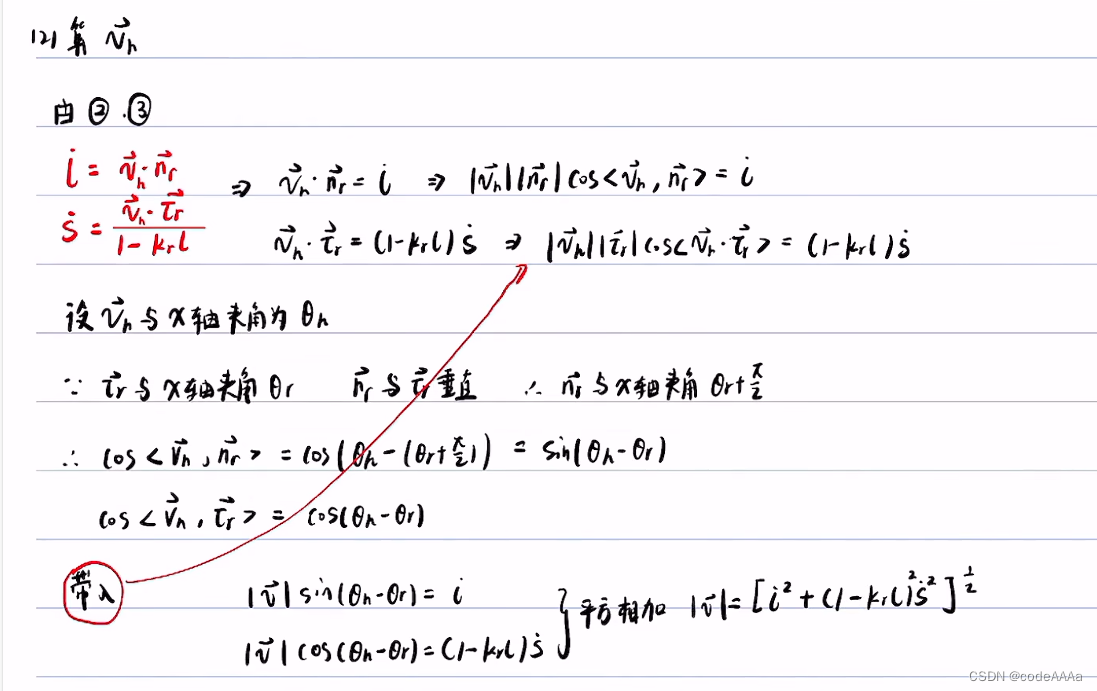 (2) 算 $\vec{v}_h$
由 ② . ③
$\dot{l} = \vec{v}_h \cdot \vec{n}_r$ ⇒ $\vec{v}_h \cdot \vec{n}_r = \dot{l}$ ⇒ $|\vec{v}_h||\vec{n}_r| \cos<\vec{v}_h, \vec{n}_r> = \dot{l}$
$\dot{s} = \frac{\vec{v}_h \cdot \vec{\tau}_r}{1 - k_r l}$ $\vec{v}_h \cdot \vec{\tau}_r = (1 - k_r l)\dot{s}$ ⇒ $|\vec{v}_h||\vec{\tau}_r| \cos<\vec{v}_h \cdot \vec{\tau}_r> = (1 - k_r l)\dot{s}$
设 $\vec{v}_h$ 与 x轴夹角为 $\theta_h$
∵ $\vec{\tau}_r$ 与 x轴夹角 $\theta_r$ $\vec{n}_r$ 与 $\vec{\tau}_r$ 垂直 ∴ $\vec{n}_r$ 与x轴夹角 $\theta_r + \frac{\pi}{2}$
∴ $\cos<\vec{v}_h, \vec{n}_r> = \cos(\theta_h - (\theta_r + \frac{\pi}{2})) = \sin(\theta_h - \theta_r)$
$\cos<\vec{v}_h, \vec{\tau}_r> = \cos(\theta_h - \theta_r)$
带入 $|\vec{v}| \sin(\theta_h - \theta_r) = \dot{l}$
$|\vec{v}| \cos(\theta_h - \theta_r) = (1 - k_r l)\dot{s}$ } 平方相加 $|\vec{v}| = [\dot{l}^2 + (1 - k_r l)^2 \dot{s}^2]^{\frac{1}{2}}$
CSDN @codeAAAa